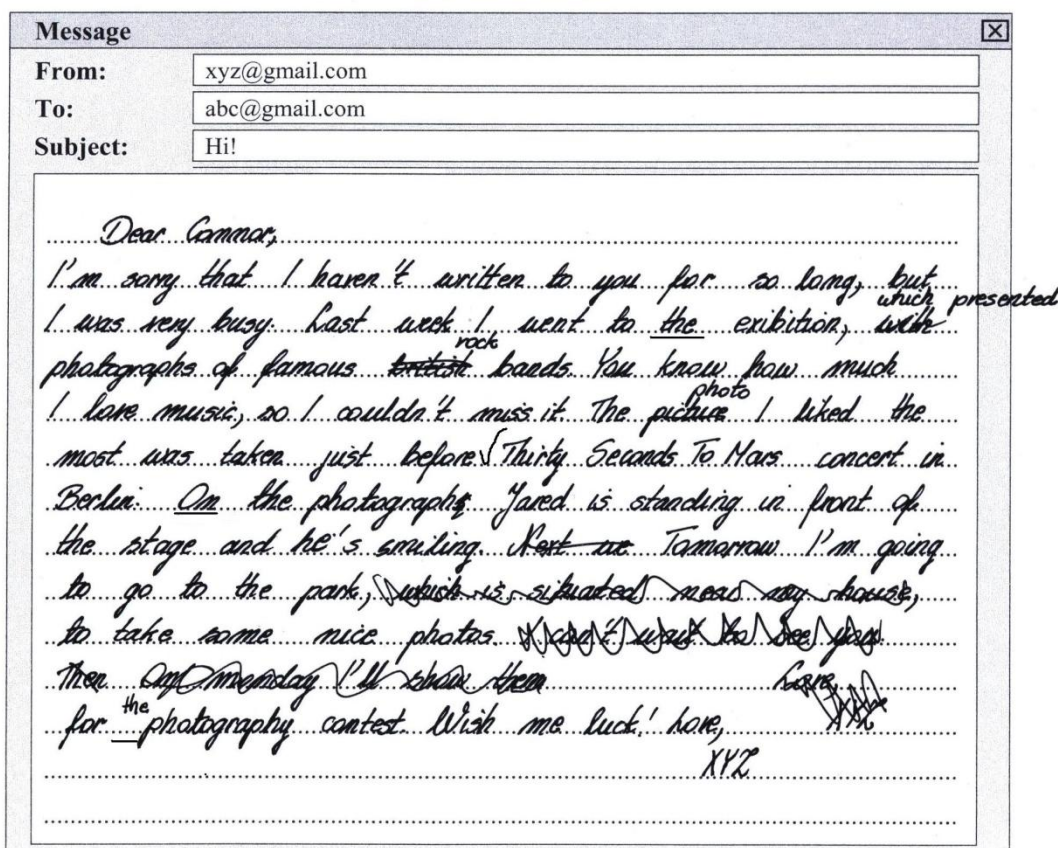 Message
From: xyz@gmail.com
To: abc@gmail.com
Subject: Hi!
Dear Connor,
I'm sorry that I haven't written to you for so long, but
I was very busy. Last week I went to the exibition, which presented
photographs of famous rock bands. You know how much
I love music, so I couldn't miss it. The photo I liked the
most was taken just before √ Thirty Seconds To Mars concert in
Berlin. On the photograph Jared is standing in front of
the stage and he's smiling. Tomorrow I'm going
to go to the park, which is situated near my house,
to take some nice photos. I can't wait to see you.
Then On monday I'll show them Love
for the photography contest. Wish me luck! Love,
XYZ